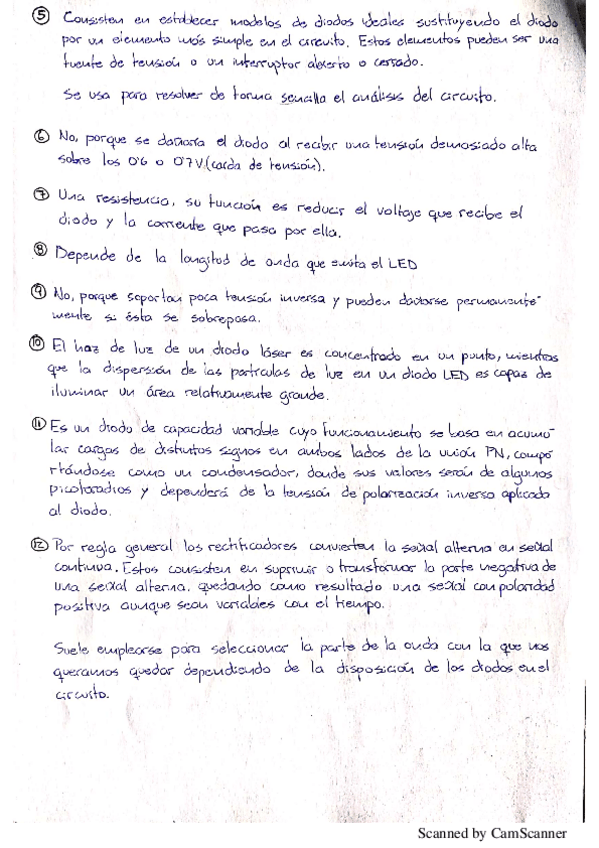 ⑤ Consisten en establecer modelos de diodos ideales sustituyendo el diodo
por un elemento más simple en el circuito. Estos elementos pueden ser una
fuente de tensión o un interruptor abierto o cerrado.
Se usa para resolver de forma sencilla el análisis del circuito.
⑥ No, porque se dañaría el diodo al recibir una tensión demasiado alta
sobre los 0'6 o 0'7V.(caída de tensión).
⑦ Una resistencia, su función es reducir el voltaje que recibe el
diodo y la corriente que pasa por ella.
⑧ Depende de la longitud de onda que emita el LED
⑨ No, porque soportan poca tensión inversa y pueden dañarse permanente-
mente si ésta se sobrepasa.
⑩ El haz de luz de un diodo láser es concentrado en un punto, mientras
que la dispersión de las partículas de luz en un diodo LED es capas de
iluminar un área relativamente grande.
⑪ Es un diodo de capacidad variable cuyo funcionamiento se basa en acumu-
lar cargas de distintos signos en ambos lados de la unión PN, compo-
rtándose como un condensador, donde sus valores serán de algunos
picofaradios y dependerá de la tensión de polarización inversa aplicada
al diodo.
⑫ Por regla general los rectificadores convierten la señal alterna en señal
continua. Estos consisten en suprimir o transformar la parte negativa de
una señal alterna, quedando como resultado una señal con polaridad
positiva aunque sean variables con el tiempo.
Suele emplearse para seleccionar la parte de la onda con la que nos
queramos quedar dependiendo de la disposición de los diodos en el
circuito.
Scanned by CamScanner